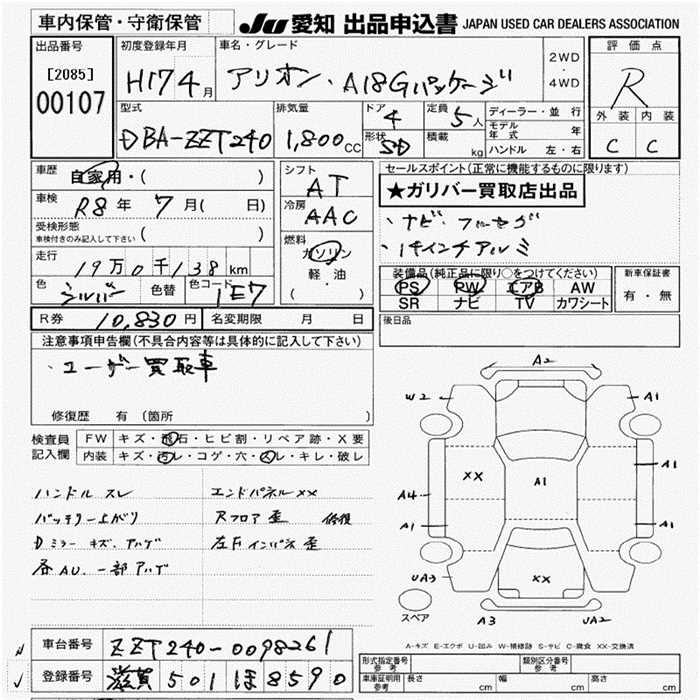 車内保管・守衛保管
JU 愛知 出品申込書 JAPAN USED CAR DEALERS ASSOCIATION
出品番号
[2085]
00107
初度登録年月
H17 4月
車名・グレード
アリオン・A18Gパッケージ
2WD
・
4WD
評価点
R
外装 内装
C C
型式
DBA-ZZT240
排気量
1,800cc
ドア
4
形状
SD
定員
5人
積載
kg
ディーラー・並行
モデル年式 年
ハンドル 左・右
車歴
自家用・( )
車検
R8年 7月( 日)
受検形態
車検付きのみ記入して下さい ( )
走行
19万0千138km
色
シルバー
色替
色コード
1E7
シフト
AT
冷房
AAC
燃料
ガソリン
軽・油
( ・ )
セールスポイント(正常に機能するものに限ります)
★ガリバー買取店出品
・ナビ・フルセグ
・14インチアルミ
装備品(純正品に限り○をつけてください)
PS PW エアB AW
SR ナビ TV カワシート
新車保証書
有・無
R券 10,830円
名変期限 月 日
後日品
注意事項申告欄(不具合内容等は具体的に記入して下さい)
・ユーザー買取車
修復歴 有 (箇所
検査員記入欄
FW キズ・飛石・ヒビ割・リペア跡・X要
内装 キズ・汚レ・コゲ・穴・スレ・キレ・破レ
ハンドル スレ
バッテリー上がり
Dミラー キズ、アハゲ
各AU、一部アハゲ
エンドパネルXX
Rフロア歪 修復
左Fインパネ歪
A2
W2
A1
XX
A1
A1
A4
A1
A1
UA3
XX
UA2
A3
スペア
A-キズ E-エクボ U-凹み W-補修跡 S-サビ C-腐食 XX-交換済
車台番号 ZZT240-0098261
登録番号 滋賀 501 ほ 8590
形式指定番号 参考
類別区分番号 参考
車庫証明用 参考 長さ cm 幅 cm 高さ cm